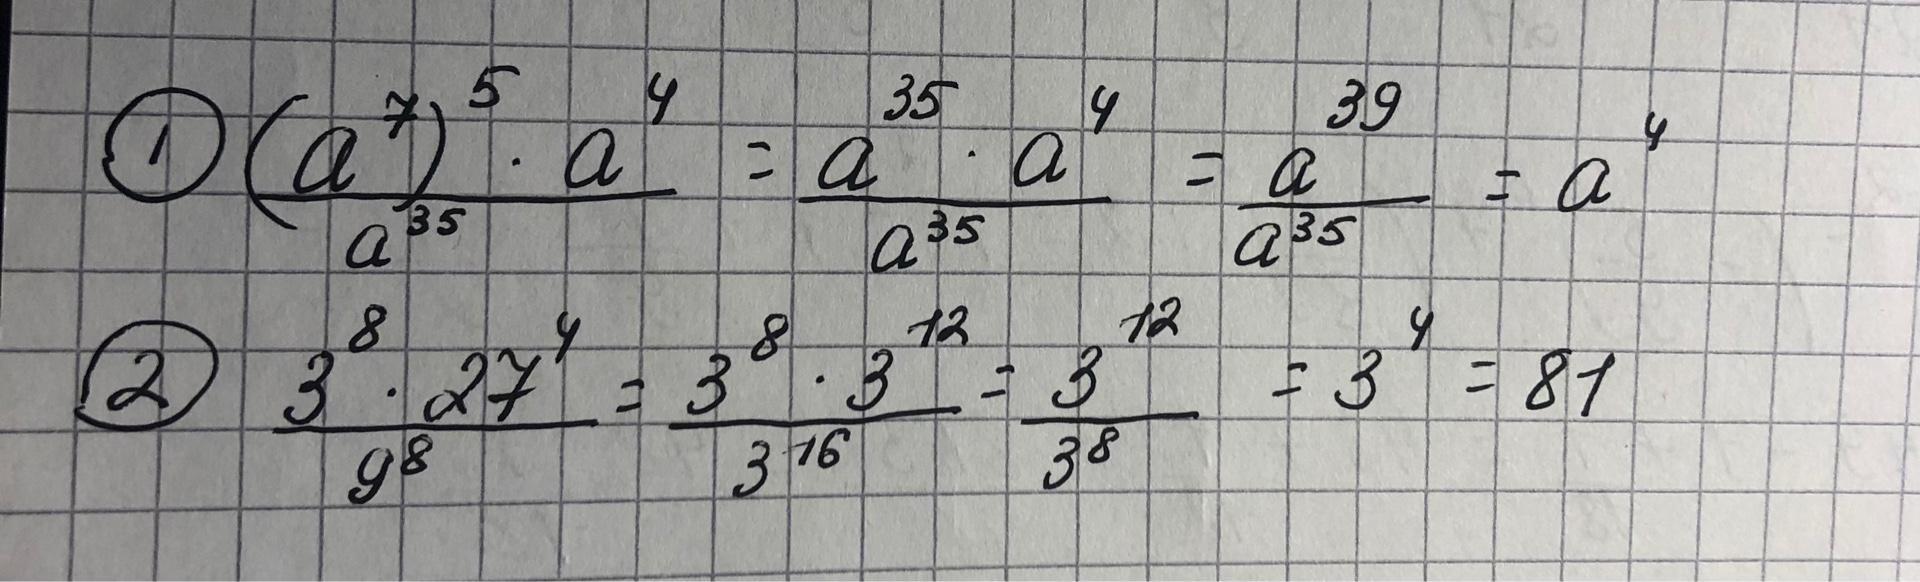 ① (a⁷)⁵ · a⁴ / a³⁵ = a³⁵ · a⁴ / a³⁵ = a³⁹ / a³⁵ = a⁴
② 3⁸ · 27⁴ / 9⁸ = 3⁸ · 3¹² / 3¹⁶ = 3¹² / 3⁸ = 3⁴ = 81